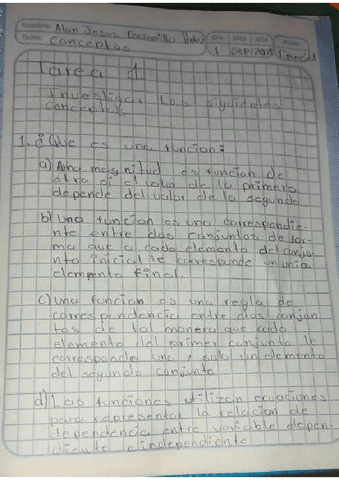 Nombre: Alan Jesus
Tema: Conceptos
Tarea 1
Investigar los siguientes
conceptos
1. ¿Que es una funcion?
a) Una magnitud es funcion de
otra si el valor de la primera
depende del valor de la segunda
b) una funcion es una correspondie-
nte entre dos conjuntos de for-
ma que a cada elemento del conju-
nto inicial le corresponde un unico
elemento final.
c) una funcion es una regla de
correspondencia entre dos conjun
tos de tal manera que cada
elemento del primer conjunto le
corresponde uno y solo un elemento
del segundo conjunto
d) Las funciones utilizan ecuaciones
para representar la relacion de
dependencia entre variable depen-
diente e independiente